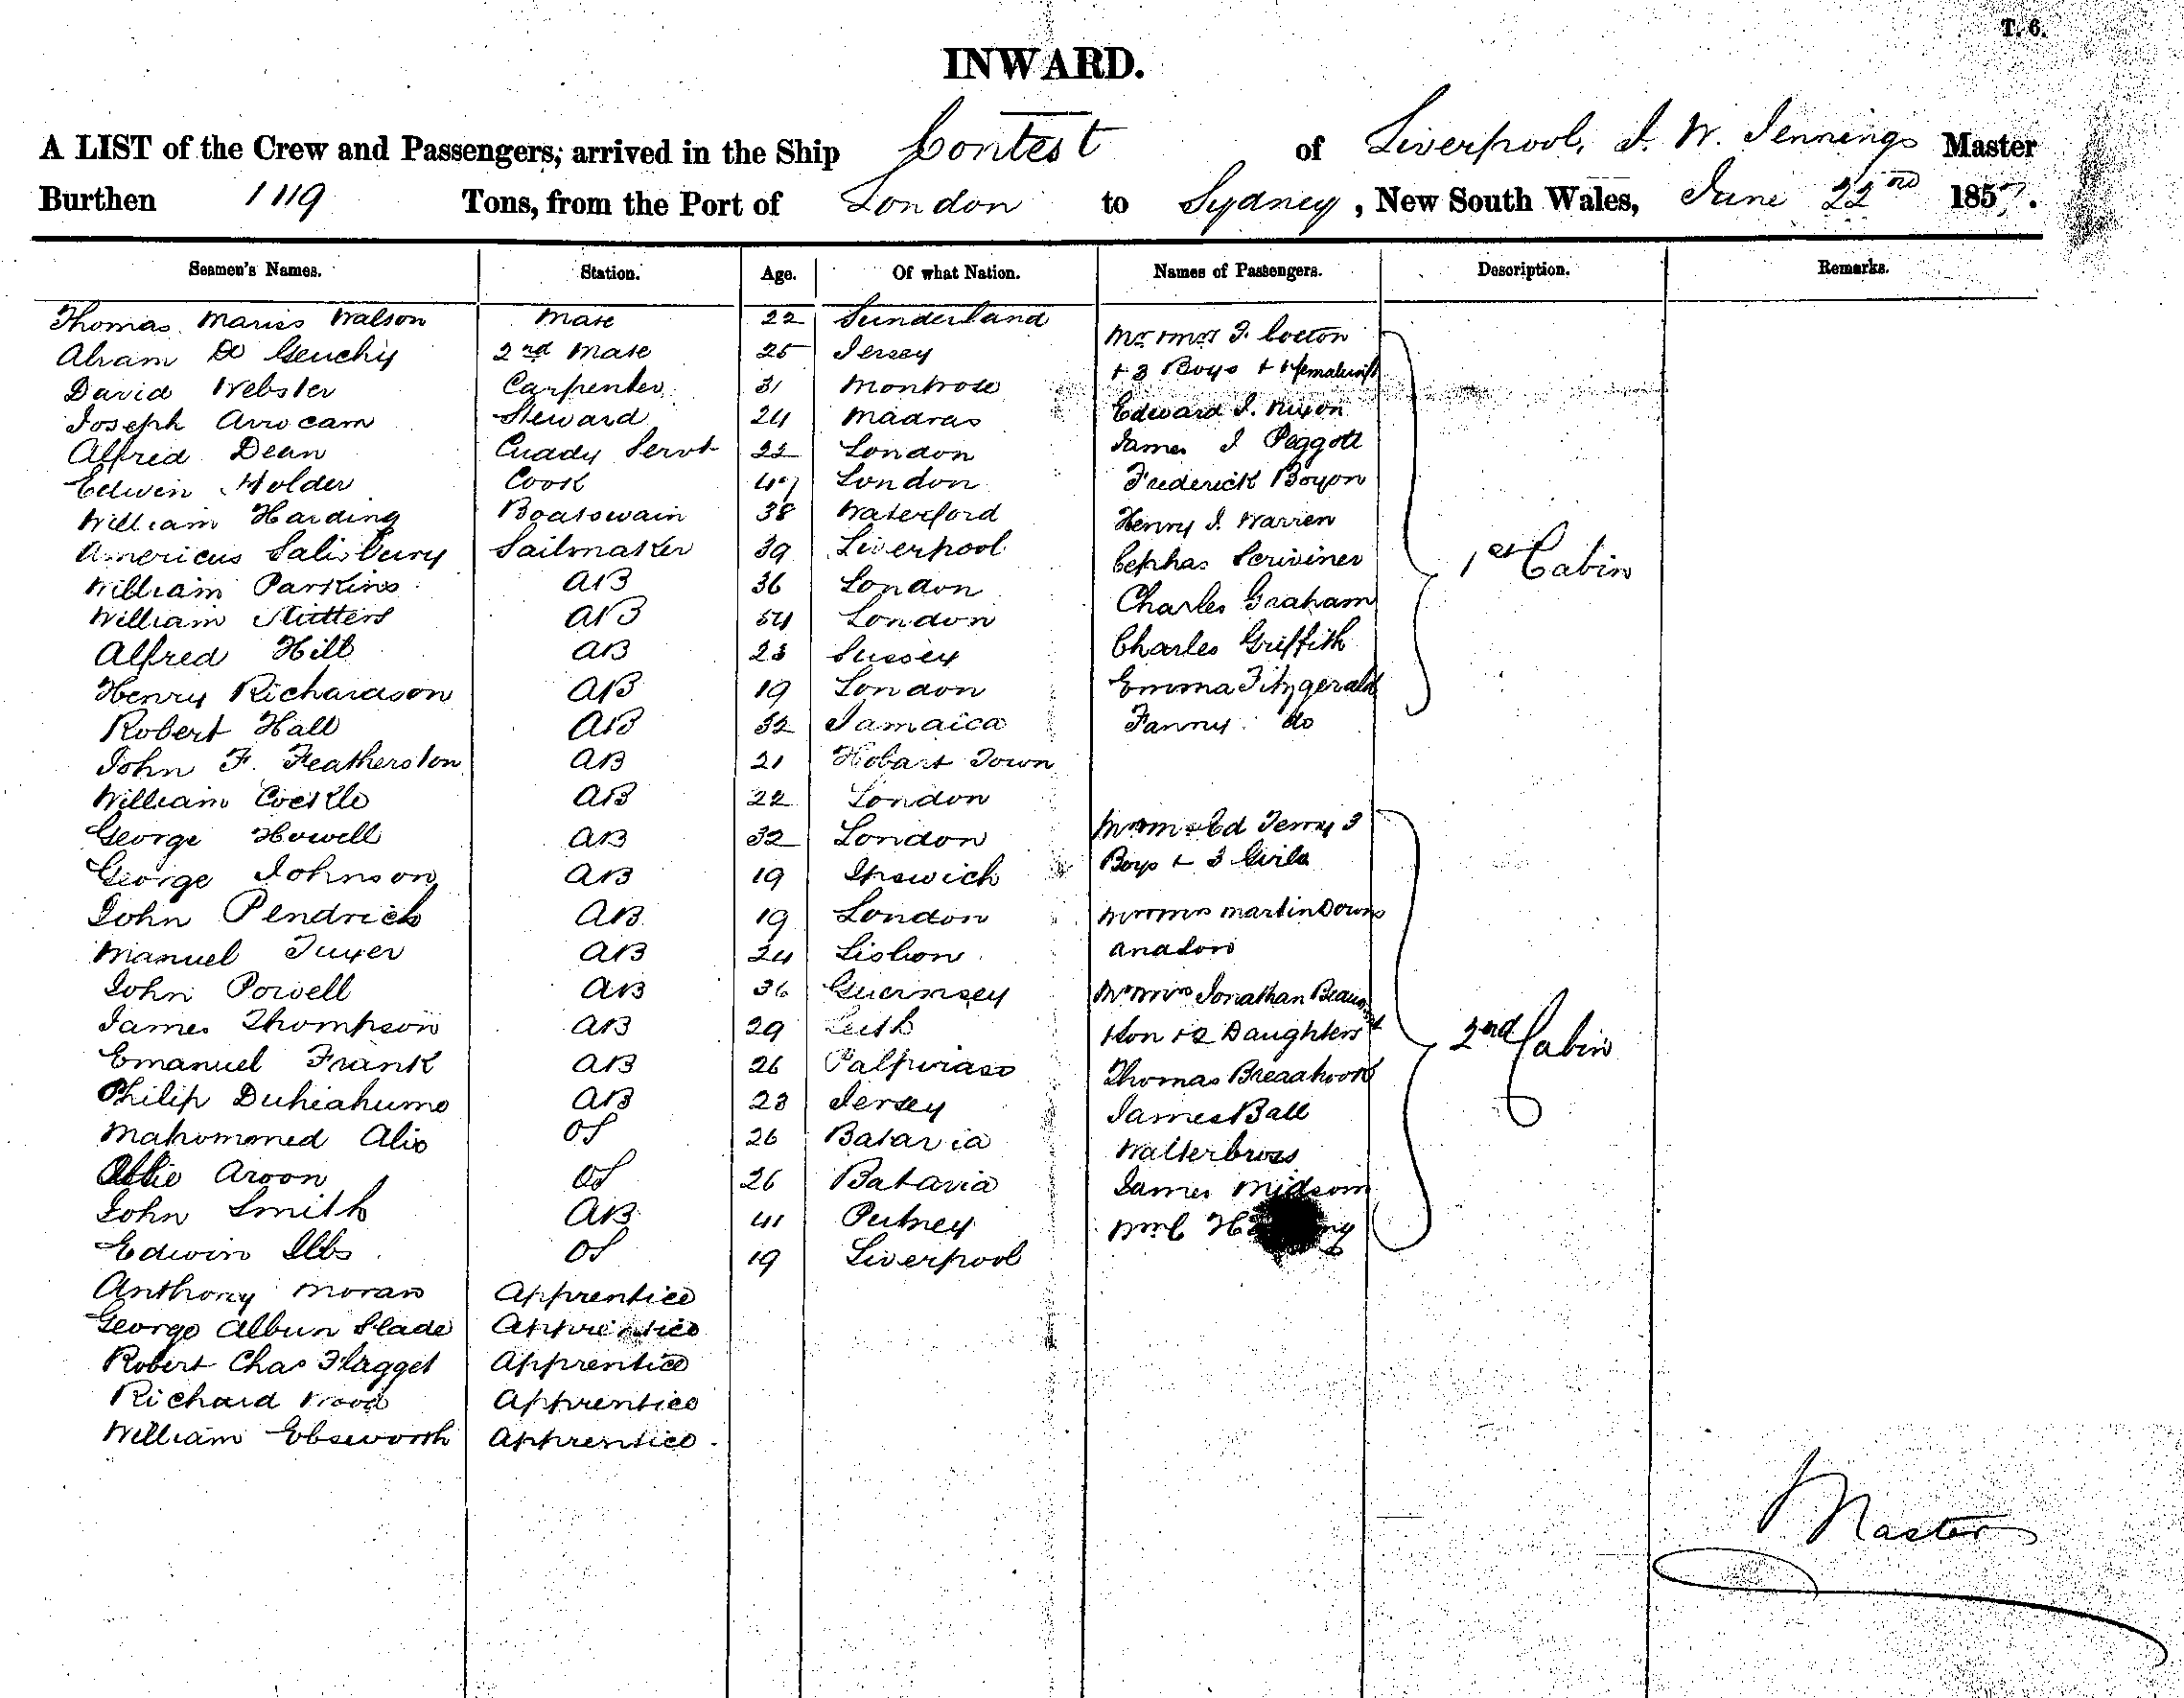 T. 6.
INWARD.
A LIST of the Crew and Passengers, arrived in the Ship Contest of Liverpool, J. W. Jennings Master
Burthen 1119 Tons, from the Port of London to Sydney, New South Wales, June 22nd 1857.
Seamen's Names. Station. Age. Of what Nation. Names of Passengers. Description. Remarks.
Thomas Watson Mate 22 Sunderland
De Geuchy 2nd Mate 25 Jersey
David Webster Carpenter 31 Montrose
Joseph Arrocam Steward 24 Madras
Alfred Dean Cuddy Servt 22 London
Edwin Holder Cook London
William Harding Boatswain 38 Waterford
Americus Salisbury Sailmaker 39 Liverpool
William Parkins AB 36 London
William AB 54 London
Alfred Hill AB 23 Sussex
Henry Richardson AB 19 London
Robert Hall AB 32 Jamaica
John F. Featherston AB 21 Hobart Town
William Cockle AB 22 London
George Howell AB 32 London
George Johnson AB 19 Ipswich
John Pendrick AB 19 London
Manuel AB 24 Lisbon
John Powell AB 36 Guernsey
James Thompson AB 29 Leith
Emanuel Frank AB 26 Valpiraso
Philip AB 23 Jersey
Mahommed Alie OS 26 Batavia
Aroon OS 26 Batavia
John Smith AB 41 Putney
Edwin Ibbs OS 19 Liverpool
Anthony Moran Apprentice
George Albun Slade Apprentice
Robert Chas Flagget Apprentice
Richard Wood Apprentice
William Ebsworth Apprentice.
Mr & Mrs J.
+ 3 Boys + 1
Edward J. Nixon
James J Peggott
Frederick Boyon
Henry J. Warren
Cephas Scriviner
Charles Graham
Charles Griffith
Emma Fitzgerald
Fanny do
1st Cabin
Ed Terry 3
Boys + 3 Girls
Mr & Mrs Martin Downs
and son
Mr & Mrs Jonathan Beaumont
1 Son + 2 Daughters
Thomas
James Ball
Walter Cross
James Midsom
Wm C
2nd Cabin
Master